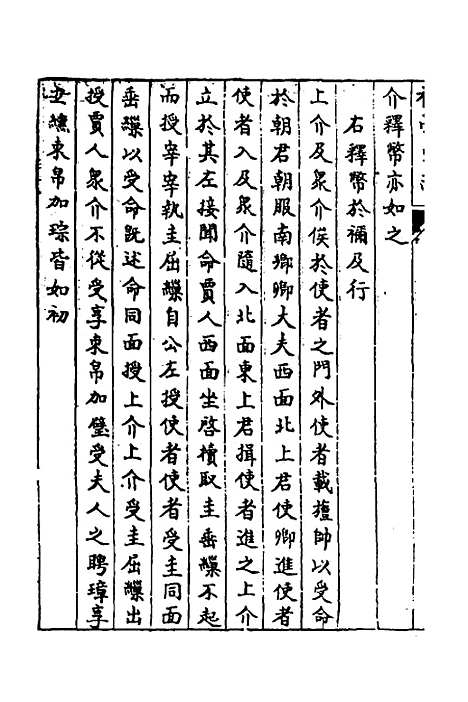 介釋幣亦如之
右釋幣於禰及行
上介及衆介俟於使者之門外使者載旜帥以受命
於朝君朝服南鄉卿大夫西面北上君使卿進使者
使者入及衆介隨入北面東上君揖使者進之上介
立於其左接聞命賈人西面坐啓櫝取圭垂繅不起
而授宰宰執圭屈繅自公左授使者使者受圭同面
垂繅以受命旣述命同面授上介上介受圭屈繅出
授賈人衆介不從受享束帛加璧受夫人之聘璋享
玄纁束帛加琮皆如初